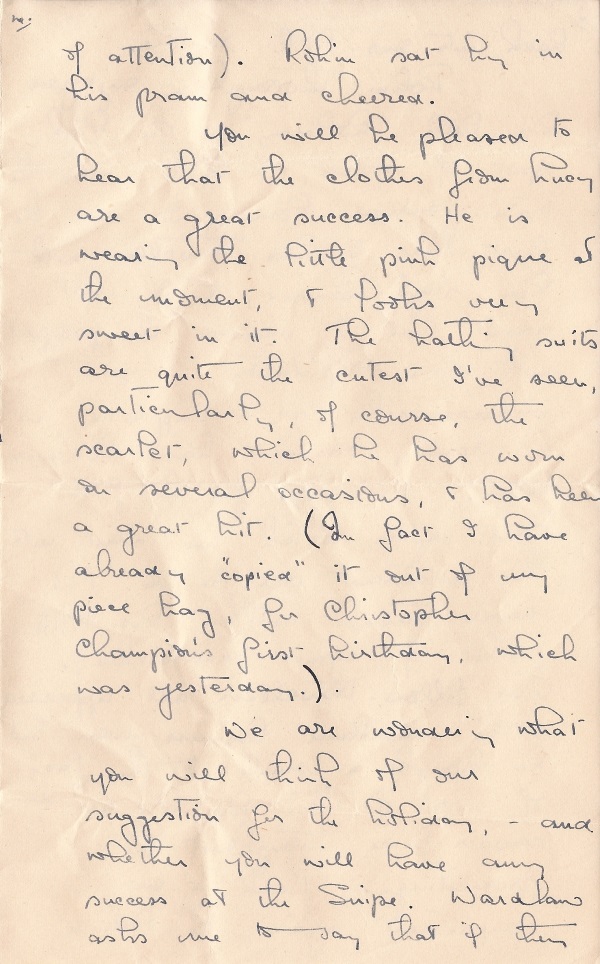 of attention). Robin sat by in
his pram and cheered.
You will be pleased to
hear that the clothes from Lucy
are a great success. He is
wearing the little pink pique at
the moment, & looks very
sweet in it. The bathing suits
are quite the cutest I've seen,
particularly, of course, the
scarlet, which he has worn
on several occasions, & has been
a great hit. (In fact I have
already "copied" it out of my
piece bag, for Christopher
Champion's first birthday, which
was yesterday.).
We are wondering what
you will think of our
suggestion for the holiday, - and
whether you will have any
success at the Snipe. Wardlaw
asks me to say that if they